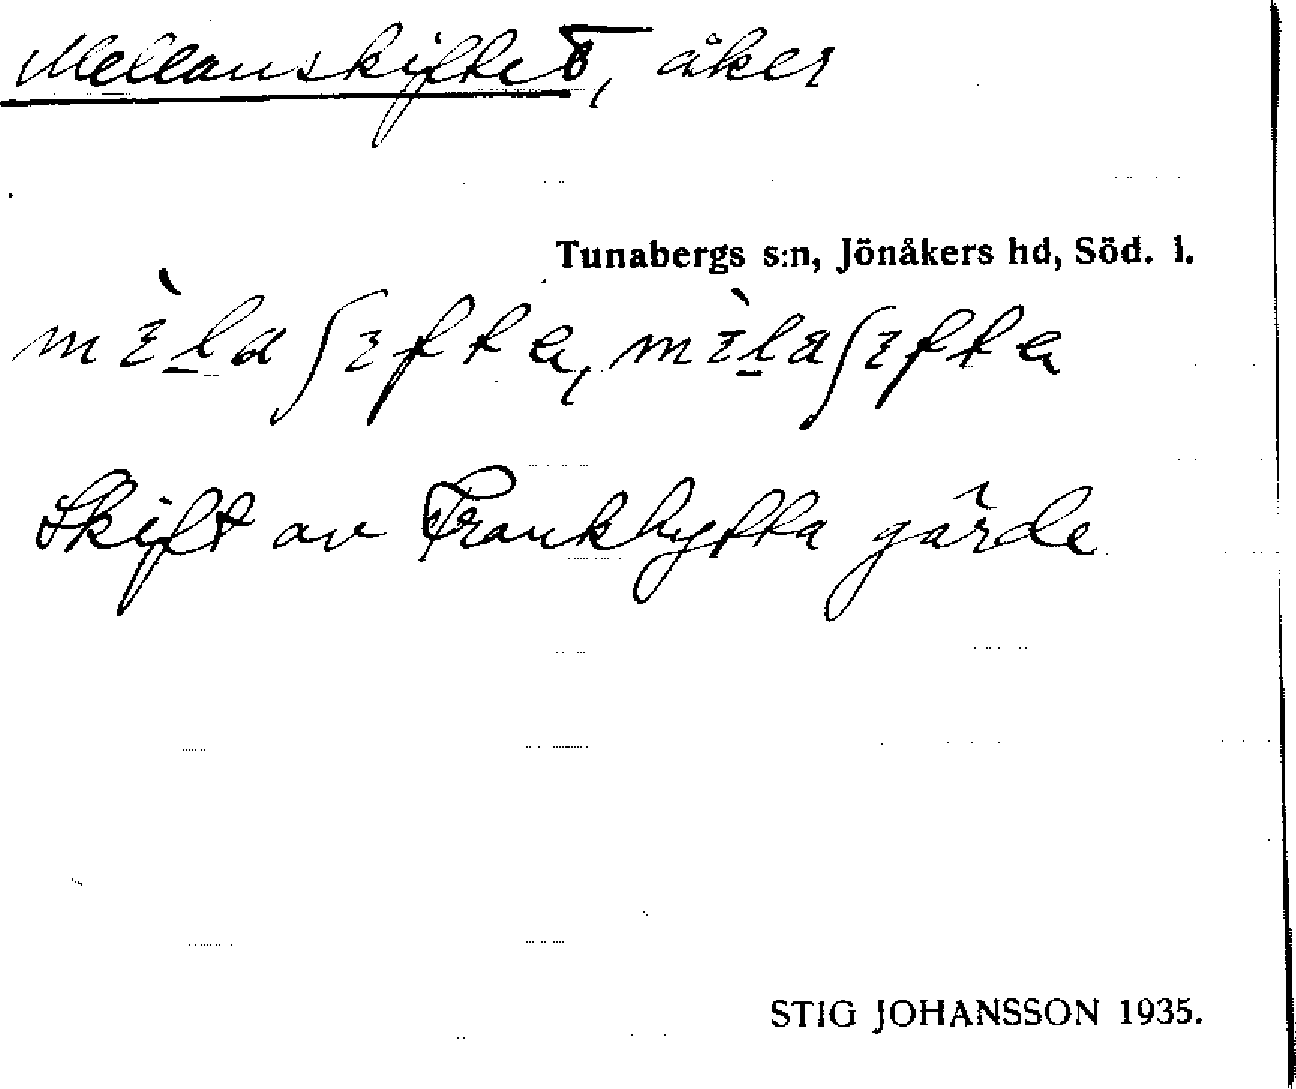 Mellanskiftet, åker
Tunabergs s:n, Jönåkers hd, Söd. l.
mɛ̀la ʃɛfta, mɛ̀laʃɛfta
Skift av Frankhytta gärde
STIG JOHANSSON 1935.